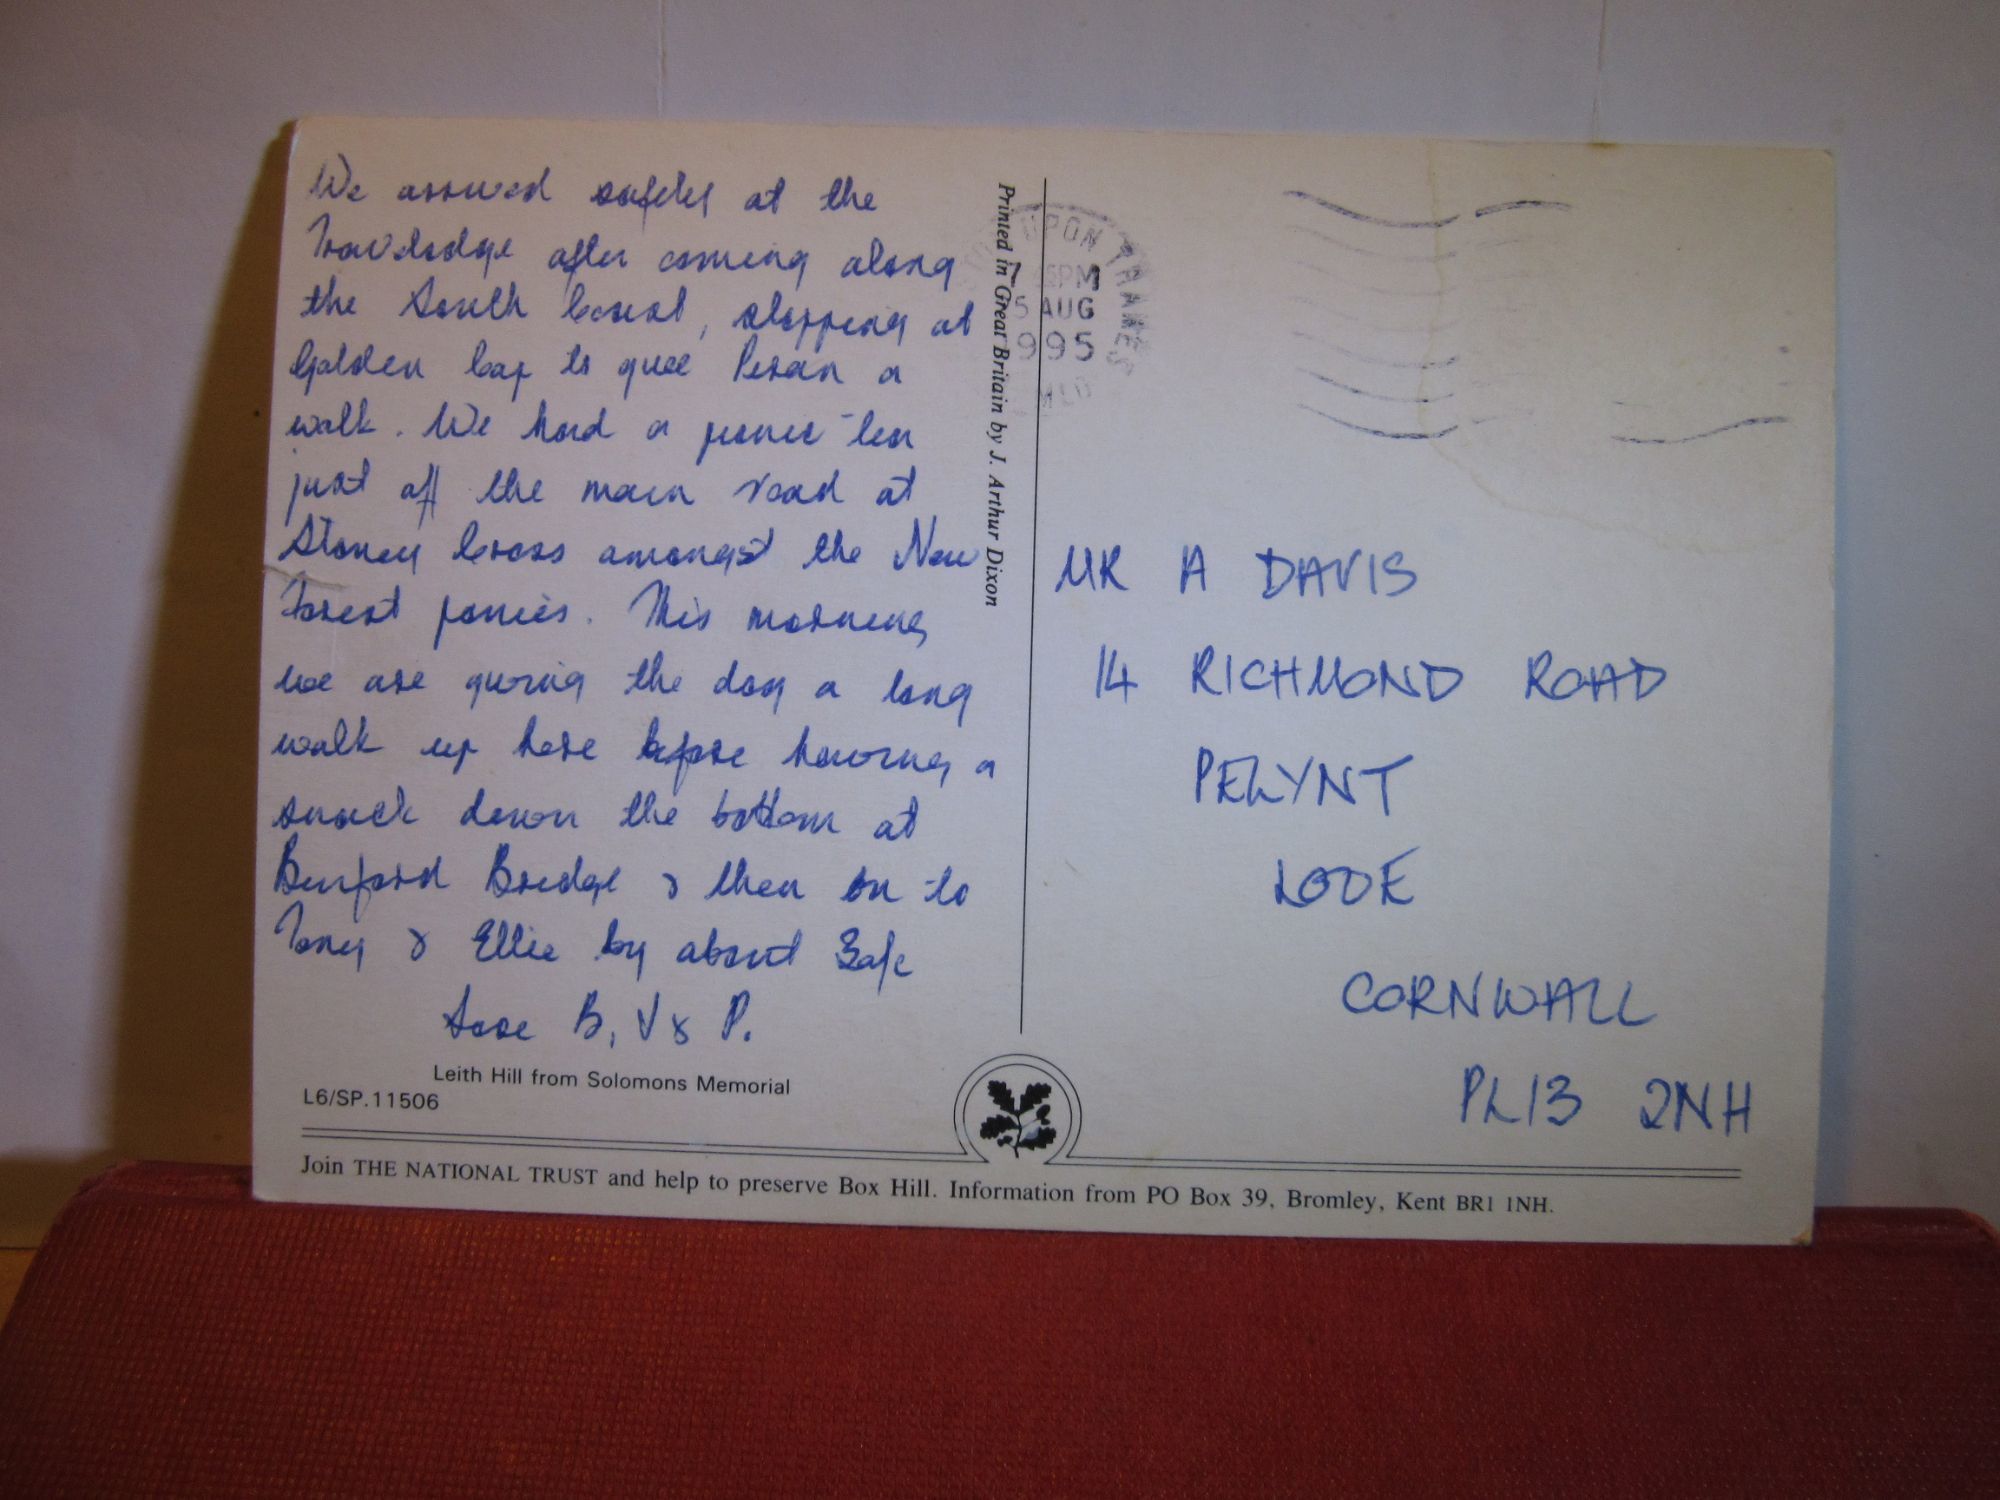 We arrived safely at the
Travelodge after coming along
the South Coast, stopping at
Golden Cap to give Peran a
walk. We had a picnic tea
just off the main road at
Stoney Cross amongst the New
Forest ponies. This morning
we are giving the dog a long
walk up here before having a
snack down the bottom at
Burford Bridge & then on to
Tony & Ellie by about 3ofc
Love B, V & P.
Leith Hill from Solomons Memorial
L6/SP.11506
Printed in Great Britain by J. Arthur Dixon
UPON THAMES
PM
5 AUG
995
MR A DAVIS
14 RICHMOND ROAD
PELYNT
LOOE
CORNWALL
PL13 2NH
Join THE NATIONAL TRUST and help to preserve Box Hill. Information from PO Box 39, Bromley, Kent BR1 1NH.